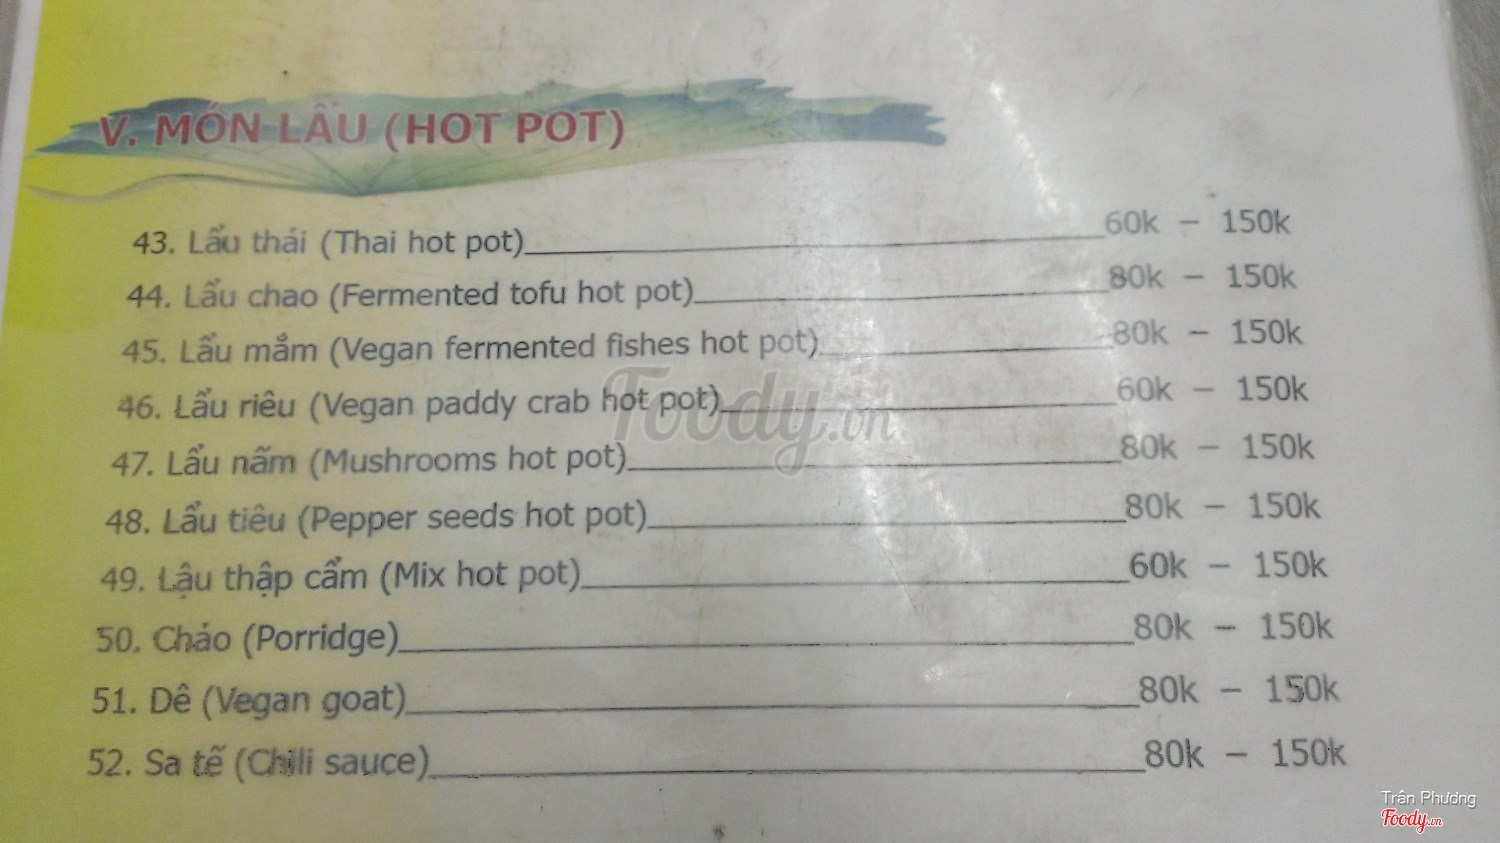 V. MÓN LẨU (HOT POT)
43. Lẩu thái (Thai hot pot) 60k - 150k
44. Lẩu chao (Fermented tofu hot pot) 80k - 150k
45. Lẩu mắm (Vegan fermented fishes hot pot) 80k - 150k
46. Lẩu riêu (Vegan paddy crab hot pot) 60k - 150k
47. Lẩu nấm (Mushrooms hot pot) 80k - 150k
48. Lẩu tiêu (Pepper seeds hot pot) 80k - 150k
49. Lậu thập cẩm (Mix hot pot) 60k - 150k
50. Cháo (Porridge) 80k - 150k
51. Dê (Vegan goat) 80k - 150k
52. Sa tế (Chili sauce) 80k - 150k
Foody.vn
Trân Phương
Foody.vn